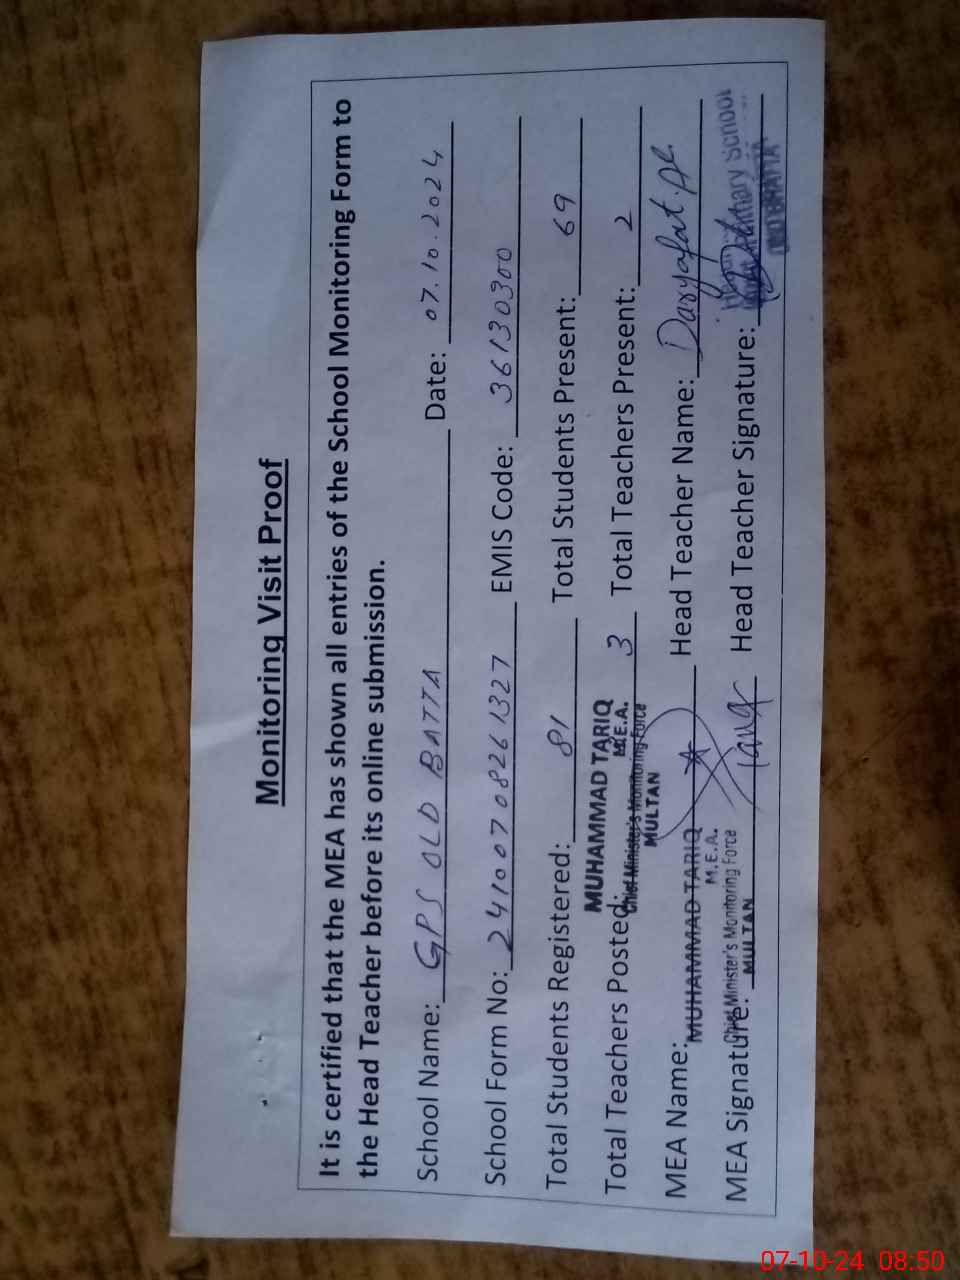 Monitoring Visit Proof
It is certified that the MEA has shown all entries of the School Monitoring Form to
the Head Teacher before its online submission.
School Name: GPS OLD BATTA Date: 07.10.2024
School Form No: 24100708261327 EMIS Code: 36130300
Total Students Registered: 81 Total Students Present: 69
MUHAMMAD TARIQ
M.E.A.
Chief Minister's Monitoring Force
MULTAN
Total Teachers Posted: 3 Total Teachers Present: 2
MEA Name: MUHAMMAD TARIQ Head Teacher Name: Daryafat
M.E.A.
Chief Minister's Monitoring Force
MULTAN
MEA Signature: Tariq Head Teacher Signature:
Primary School
07-10-24 08:50